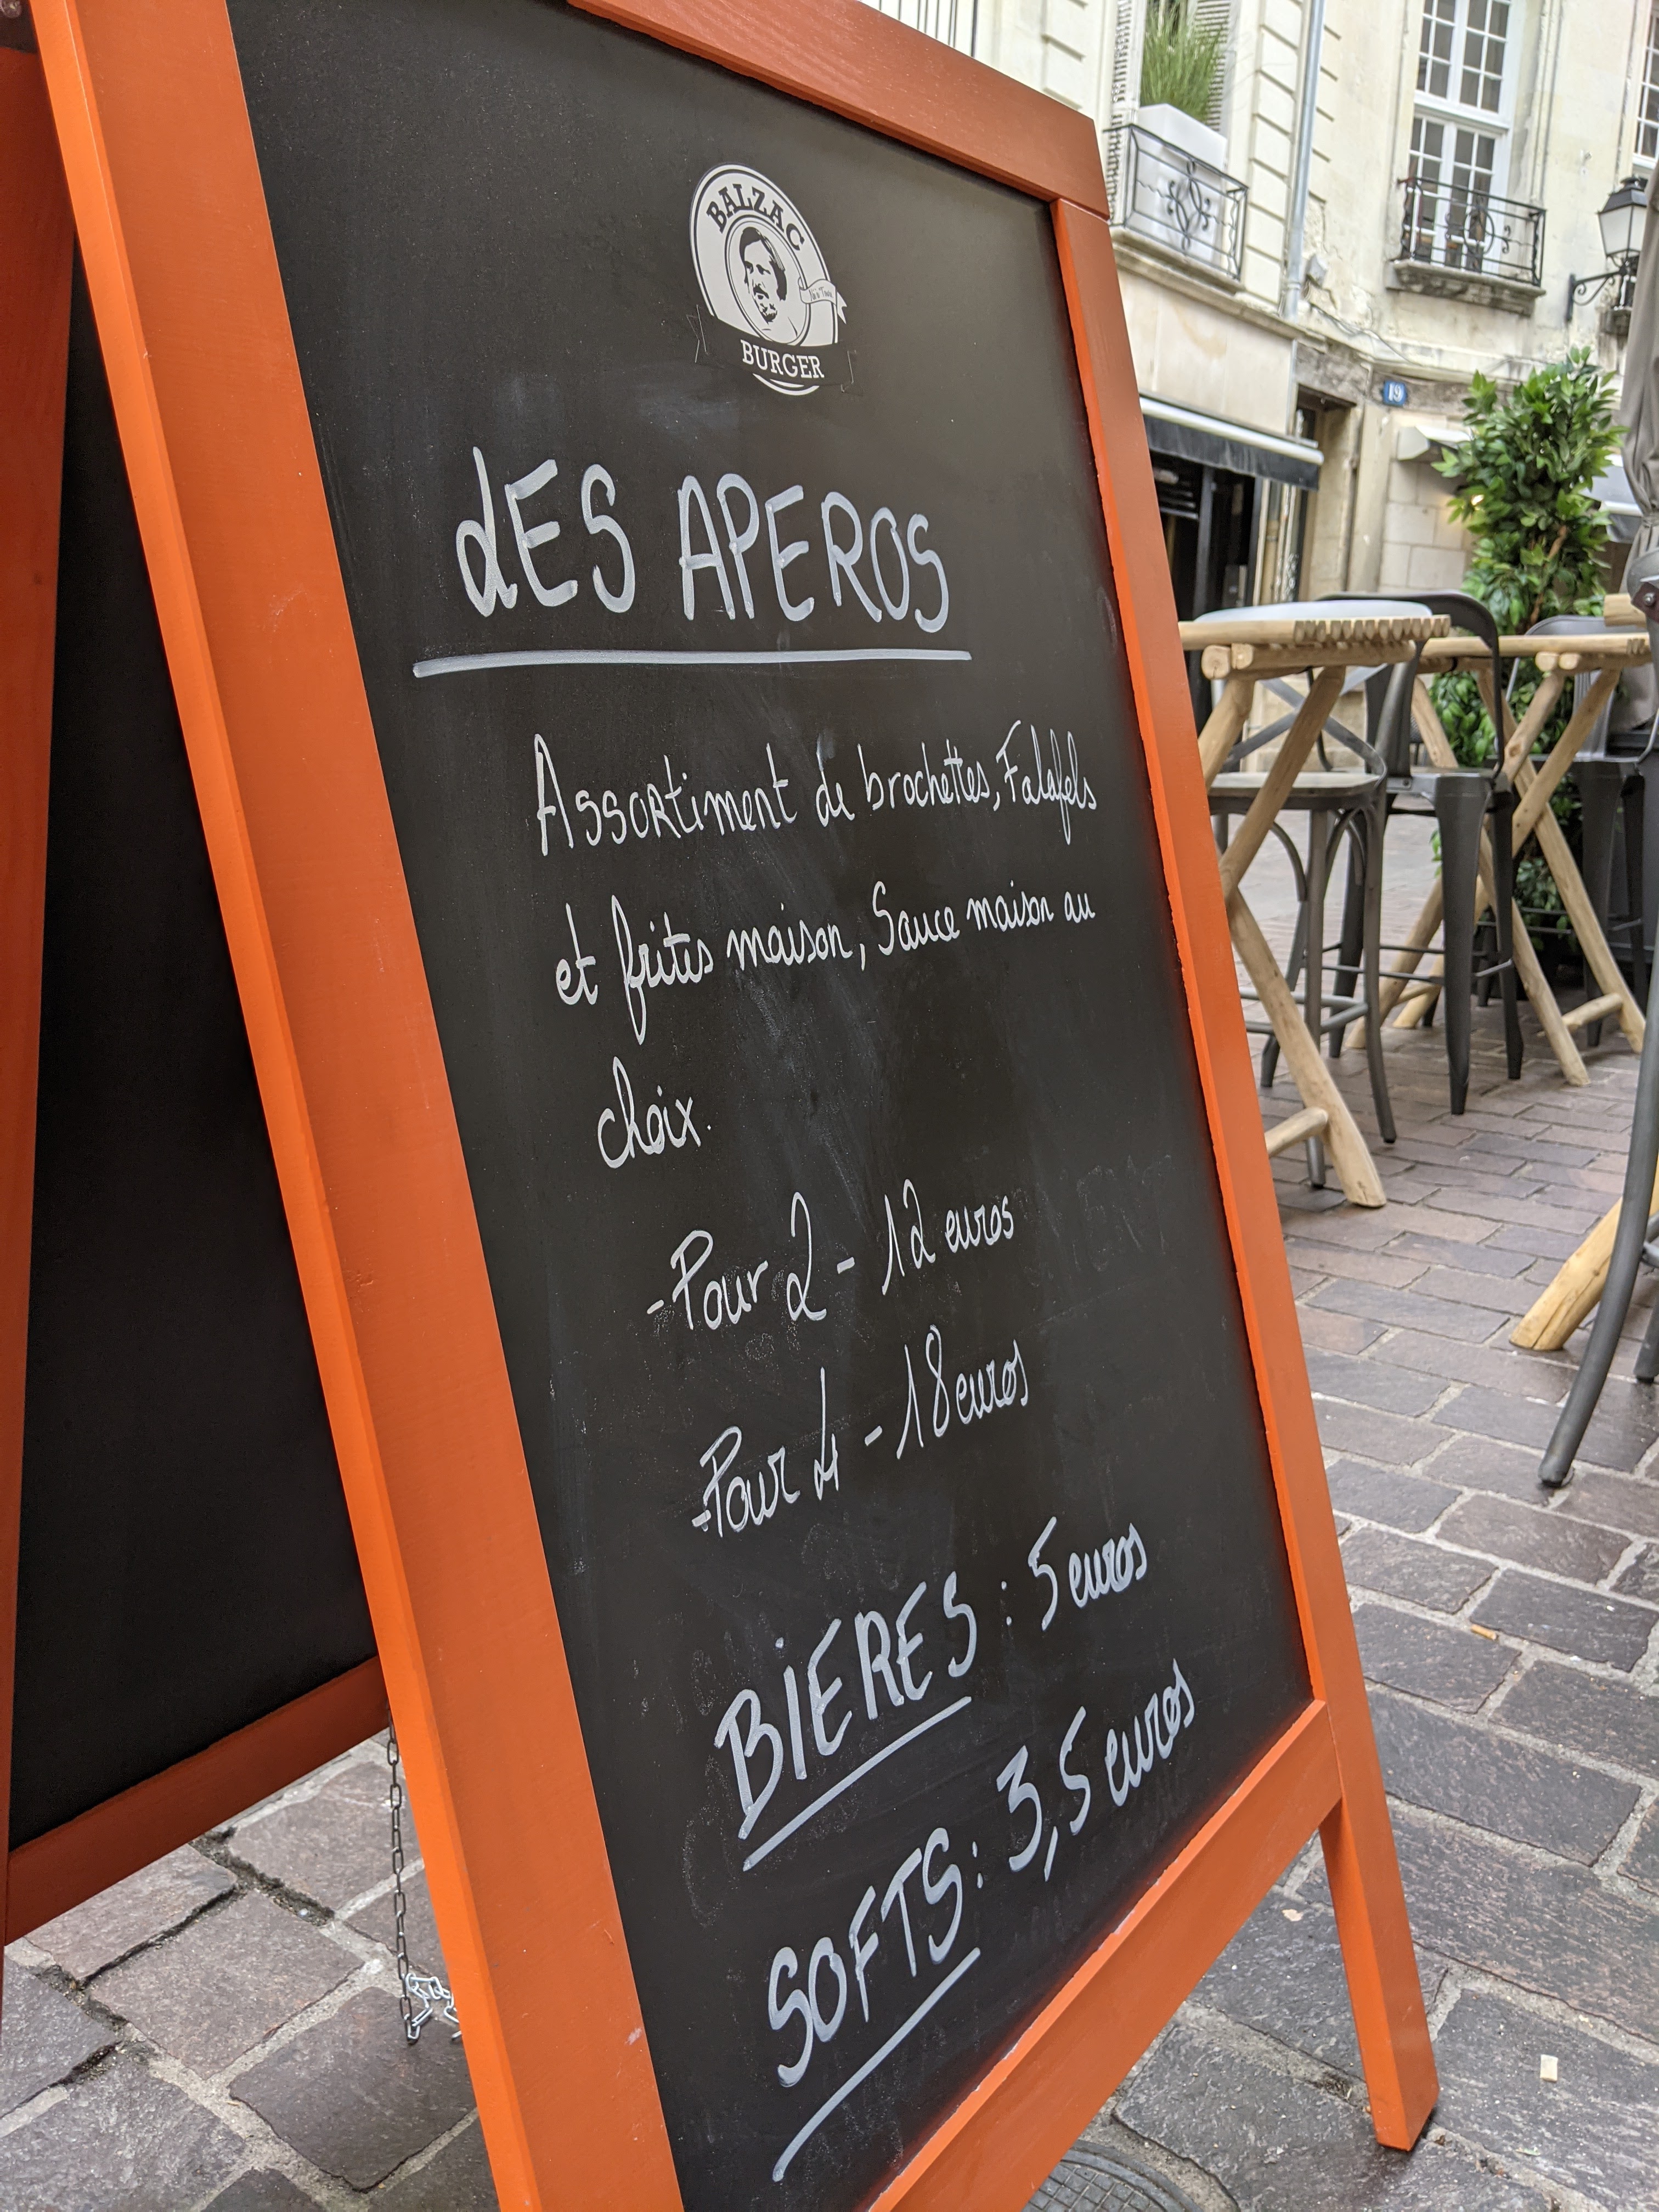 BALZAC
BURGER
dES APEROS
Assortiment de brochettes, Falafels
et frites maison, Sauce maison au
choix.
-Pour 2 - 12 euros
-Pour 4 - 18 euros
BiERES : 5 euros
SOFTS : 3,5 euros
19